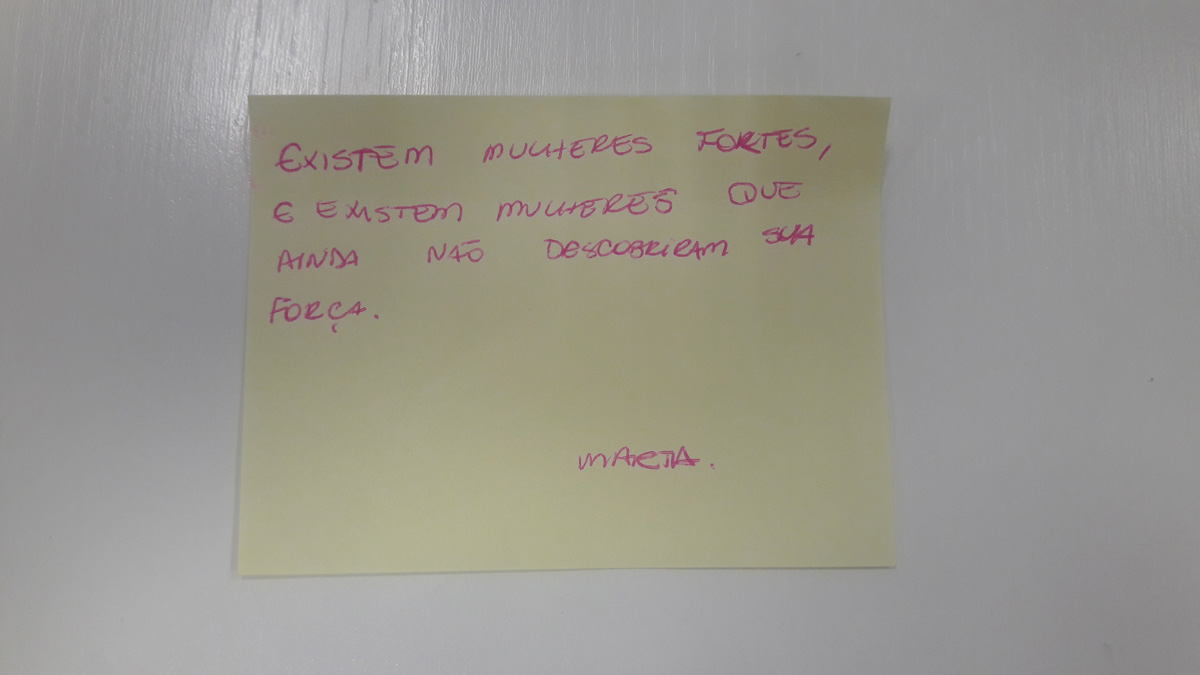 EXISTEM MULHERES FORTES,
E EXISTEM MULHERES QUE
AINDA NÃO DESCOBRIRAM SUA
FORÇA.
MARTA.